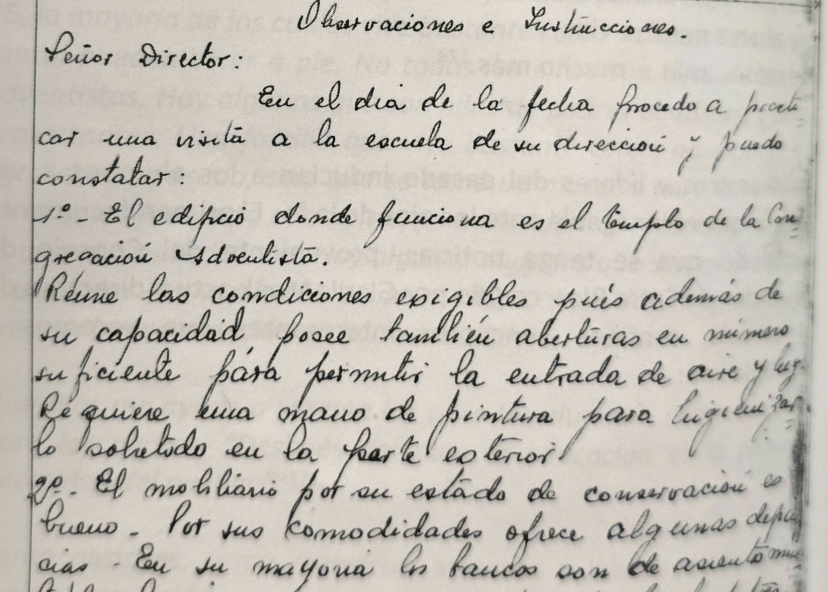 Observaciones e Instrucciones.
Señor Director:
En el dia de la fecha procedo a practi
car una visita a la escuela de su direccion y puedo
constatar:
1º - El edificio donde funciona es el templo de la Con
gregación Adventista.
Reúne las condiciones exigibles pués además de
su capacidad posee también aberturas en número
suficiente pára permitir la entrada de aire y luz.
Requiere una mano de pintura para higienizar
lo sobretodo en la parte exterior
2º - El mobiliario por su estado de conservación es
bueno - Por sus comodidades ofrece algunas
cias - En su mayoria los bancos son de asiento